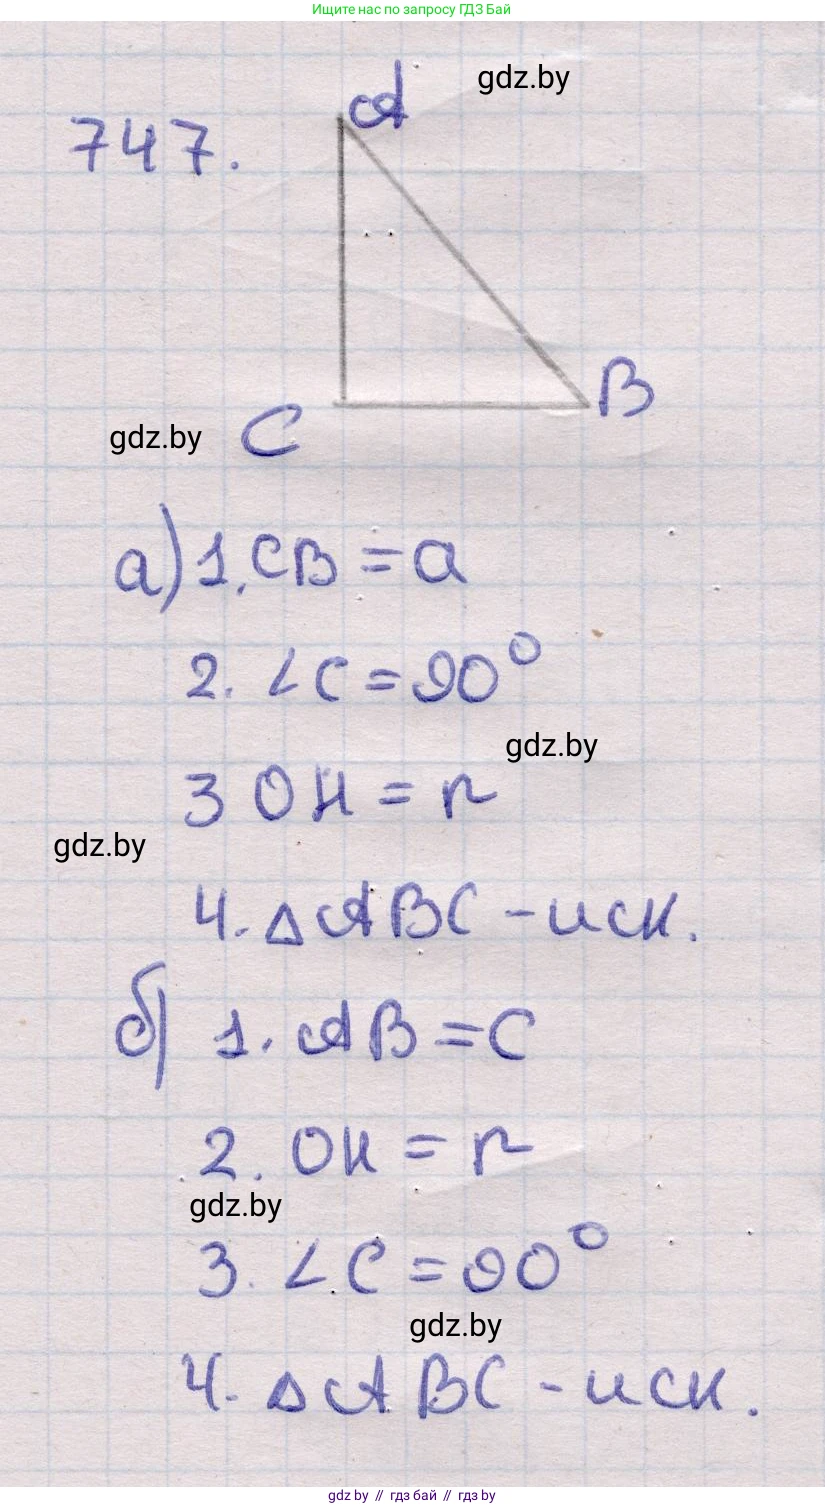 Ищите нас по запросу ГДЗ Бай
gdz.by
A
747.
B
gdz.by
C
а) 1. CB = a
2. ∠C = 90°
gdz.by
3 OH = r
gdz.by
4. △ABC - иск.
б) 1. AB = C
2. OH = r
gdz.by
3. ∠C = 90°
gdz.by
4. △ABC - иск.
gdz.by // гдз бай // гдз by